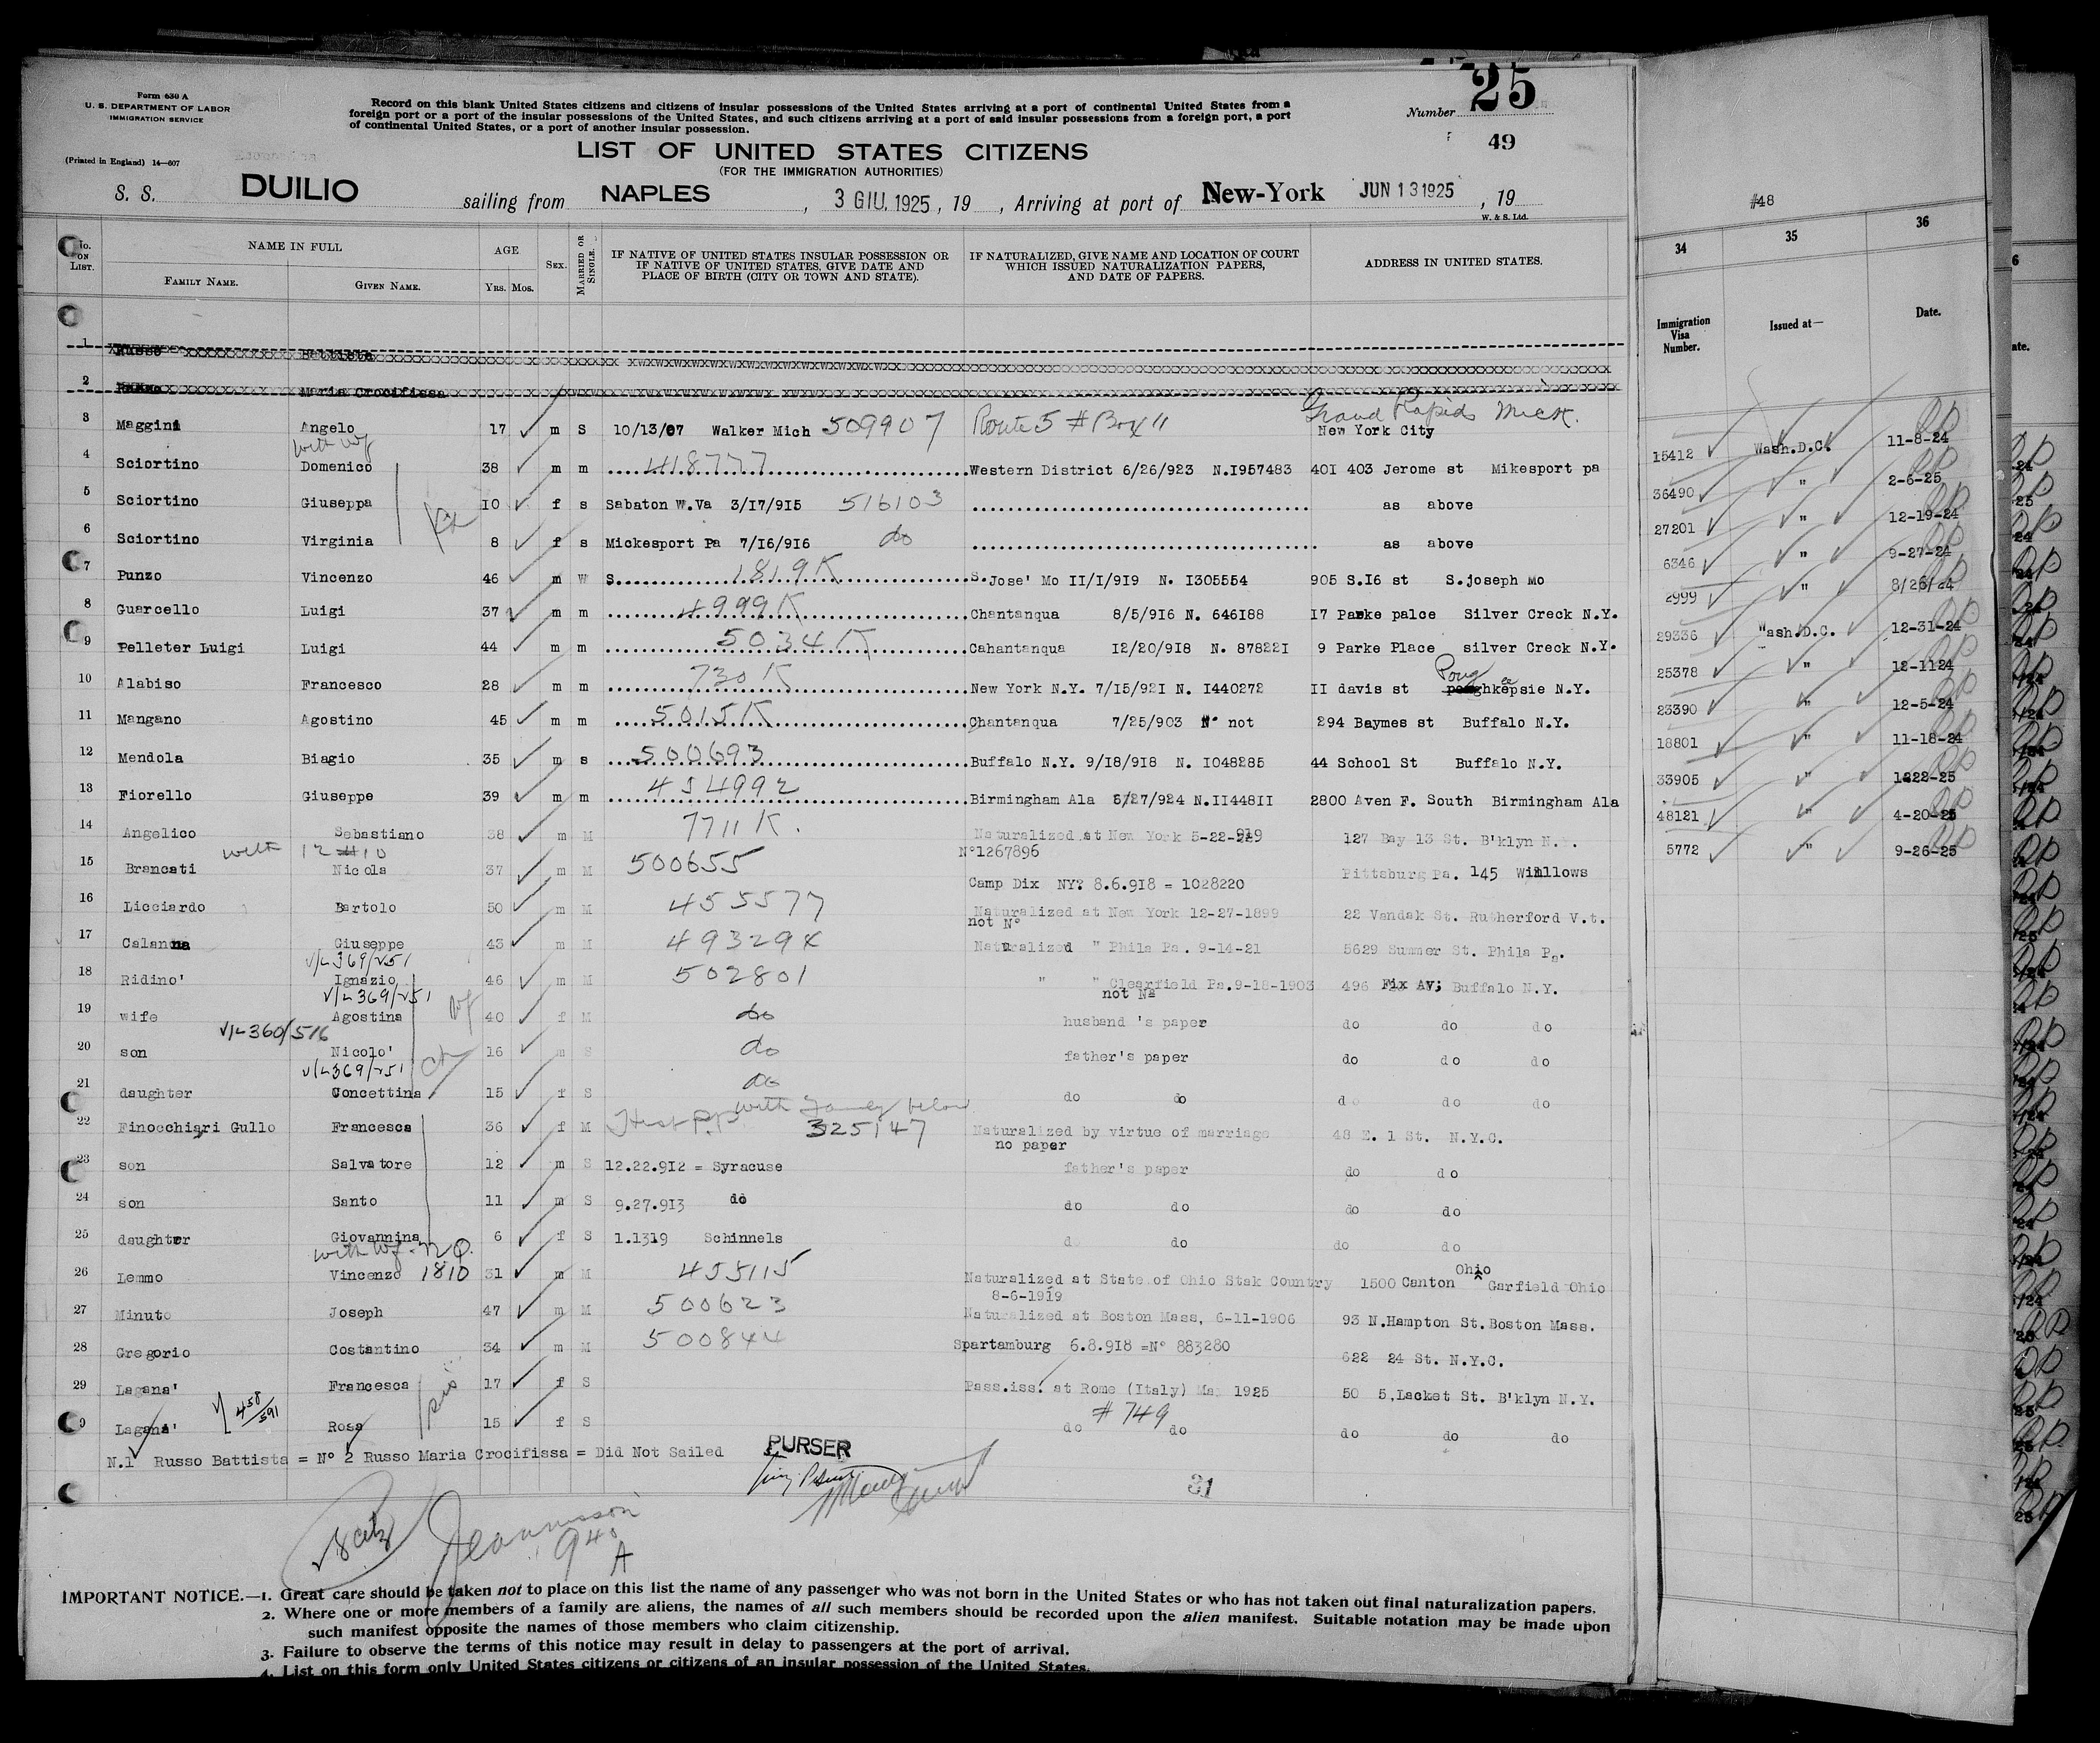 Form 630 A
U. S. DEPARTMENT OF LABOR
IMMIGRATION SERVICE
(Printed in England) 14—607
Record on this blank United States citizens and citizens of insular possessions of the United States arriving at a port of continental United States from a
foreign port or a port of the insular possessions of the United States, and such citizens arriving at a port of said insular possessions from a foreign port, a port
of continental United States, or a port of another insular possession.
Number 25
49
LIST OF UNITED STATES CITIZENS
(FOR THE IMMIGRATION AUTHORITIES)
S. S. DUILIO sailing from NAPLES, 3 GIU. 1925, 19 , Arriving at port of New-York JUN 13 1925, 19
W. & S. Ltd.
No. ON LIST. NAME IN FULL FAMILY NAME. GIVEN NAME. AGE YRS. MOS. SEX. MARRIED OR SINGLE. IF NATIVE OF UNITED STATES INSULAR POSSESSION OR IF NATIVE OF UNITED STATES, GIVE DATE AND PLACE OF BIRTH (CITY OR TOWN AND STATE). IF NATURALIZED, GIVE NAME AND LOCATION OF COURT WHICH ISSUED NATURALIZATION PAPERS, AND DATE OF PAPERS. ADDRESS IN UNITED STATES.
1 Russo Battista
2 Russo Maria Crocifissa
Grand Rapids Mich.
3 Maggini Angelo 17 m S 10/13/07 Walker Mich 509907 Route 5 # Box 11 New York City
with wf
4 Sciortino Domenico 38 m m 418777 Western District 6/26/923 N.I957483 40I 403 Jerome st Mikesport pa
5 Sciortino Giuseppa I0 f s Sabaton W.Va 3/I7/9I5 516103 as above
6 Sciortino Virginia 8 f s Mickesport Pa 7/I6/9I6 do as above
7 Punzo Vincenzo 46 m W S. 1819K S. Jose' Mo II/I/9I9 N. I305554 905 S.I6 st S.joseph Mo
8 Guarcello Luigi 37 m m 4999K Chantanqua 8/5/9I6 N. 646I88 I7 Parke palce Silver Creck N.Y.
9 Pelleter Luigi Luigi 44 m m 5034K Cahantanqua I2/20/9I8 N. 87822I 9 Parke Place silver Creck N.Y.
10 Alabiso Francesco 28 m m 730K New York N.Y. 7/I5/92I N. I440272 II davis st Poughkeepsie N.Y.
11 Mangano Agostino 45 m m 5015K Chantanqua 7/25/903 N° not 294 Baymes st Buffalo N.Y.
12 Mendola Biagio 35 m s 500693 Buffalo N.Y. 9/I8/9I8 N. I048285 44 School St Buffalo N.Y.
13 Fiorello Giuseppe 39 m m 454992 Birmingham Ala 5/27/924 N.II448II 2800 Aven F. South Birmingham Ala
14 Angelico Sebastiano 38 m M 7711K. Naturalized at New York 5-22-919 127 Bay 13 St. B'klyn N.Y.
with 12 #10 N°1267896
15 Brancati Nicola 37 m M 500655 Camp Dix NY? 8.6.9I8 = 1028220 Pittsburg Pa. 145 Willows
16 Licciardo Bartolo 50 m M 455577 Naturalized at New York 12-27-1899 22 Vandak St. Rutherford V.t.
not N°
17 Calanna Giuseppe 43 m M 493294 Naturalized " Phila Pa. 9-14-21 5629 Summer St. Phila Pa.
V/L 369/251
18 Ridino' Ignazio 46 m M 502801 " " Clearfield Pa. 9-18-1903 496 Fix Av; Buffalo N.Y.
V/L 369/251 not N°
19 wife Agostina 40 f M do husband 's paper do do do
V/L 360/516
20 son Nicolo' 16 m S do father's paper do do do
V/L 369/251
21 daughter Concettina 15 f S do do do do do do
with family below
22 Finocchiari Gullo Francesca 36 f M 325147 Naturalized by virtue of marriage 48 E. 1 St. N.Y.C.
no paper
23 son Salvatore 12 m S 12.22.9I2 = Syracuse father's paper do do
24 son Santo 11 m S 9.27.9I3 do do do do do
25 daughter Giovannina 6 f S 1.1319 Schinnels do do do do
with wf. n.q.
26 Lemmo Vincenzo 1810 31 m M 455115 Naturalized at State of Ohio Stak Country 1500 Canton Ohio Garfield Ohio
8-6-1919
27 Minuto Joseph 47 m M 500623 Naturalized at Boston Mass, 6-11-1906 93 N.Hampton St. Boston Mass.
28 Gregorio Costantino 34 m M 500844 Spartamburg 6.8.9I8 =N° 883280 622 24 St. N.Y.C.
29 Lagana' Francesca 17 f S Pass.iss. at Rome (Italy) Ma 1925 50 5,Lacket St. B'klyn N.Y.
sis # 749
Lagana' 458/591 Rosa 15 f S do do do do do
N.1 Russo Battista = N° 2 Russo Maria Crocifissa = Did Not Sailed
PURSER
31
940
A
IMPORTANT NOTICE.—1. Great care should be taken not to place on this list the name of any passenger who was not born in the United States or who has not taken out final naturalization papers.
2. Where one or more members of a family are aliens, the names of all such members should be recorded upon the alien manifest. Suitable notation may be made upon
such manifest opposite the names of those members who claim citizenship.
3. Failure to observe the terms of this notice may result in delay to passengers at the port of arrival.
4. List on this form only United States citizens or citizens of an insular possession of the United States.
#48
34 35 36
Immigration Visa Number. Issued at— Date.
15412 Wash.D.C. 11-8-24
36490 " 2-6-25
27201 " 12-19-24
6346 " 9-27-24
2999 " 8/26/24
29336 Wash.D.C. 12-31-24
25378 " 12-1124
23390 " 12-5-24
18801 " 11-18-24
33905 " 1-22-25
48121 " 4-20-25
5772 " 9-26-25